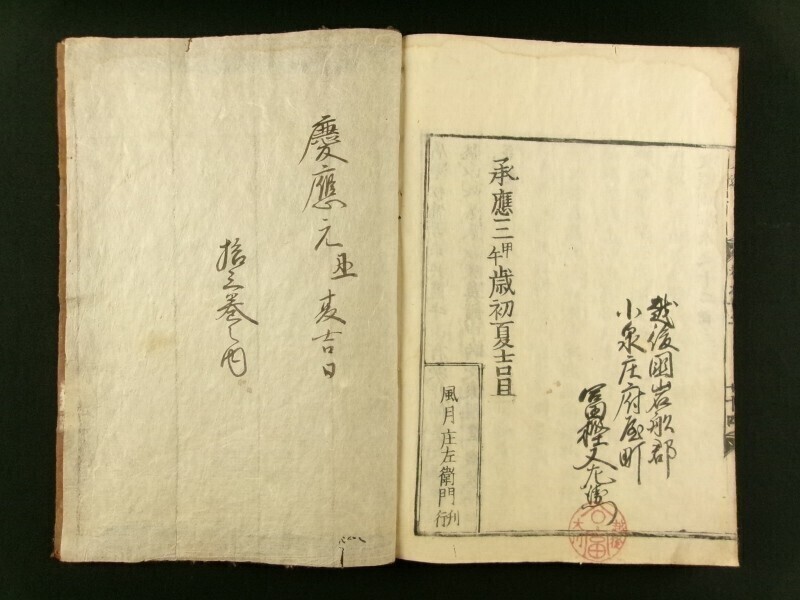 越後国岩船郡
小泉庄府屋町
冨樫又左衛門
承應三甲午歳初夏吉旦
風月庄左衛門刊行
慶應元丑夏吉日
拾三巻之内